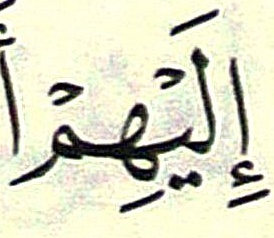 إِلَيْهِمْ أ